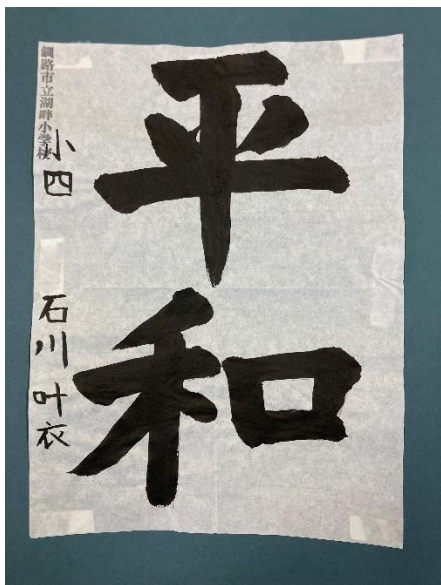 平和
釧路市立湖畔小学校
小四
石川叶衣